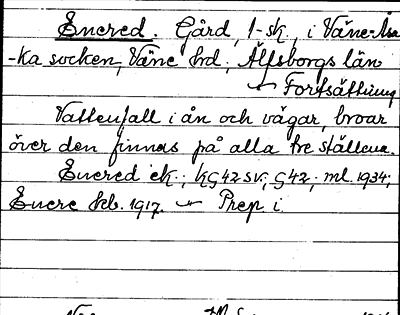 Encred. Gård, 1-sk., i Väne-Åsa
-ka socken, Väne hd., Älfsborgs län
Fortsättning
Vattenfall i ån och vägar, broar
över den finnas på alla tre ställena.
Encred ek.; KG 42 SV; G 42; ml. 1934;
Encre kb. 1917. Prep. i.